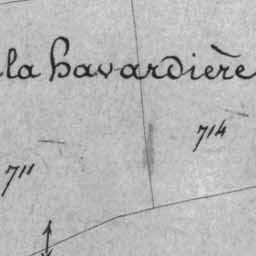 la havardière
714
711